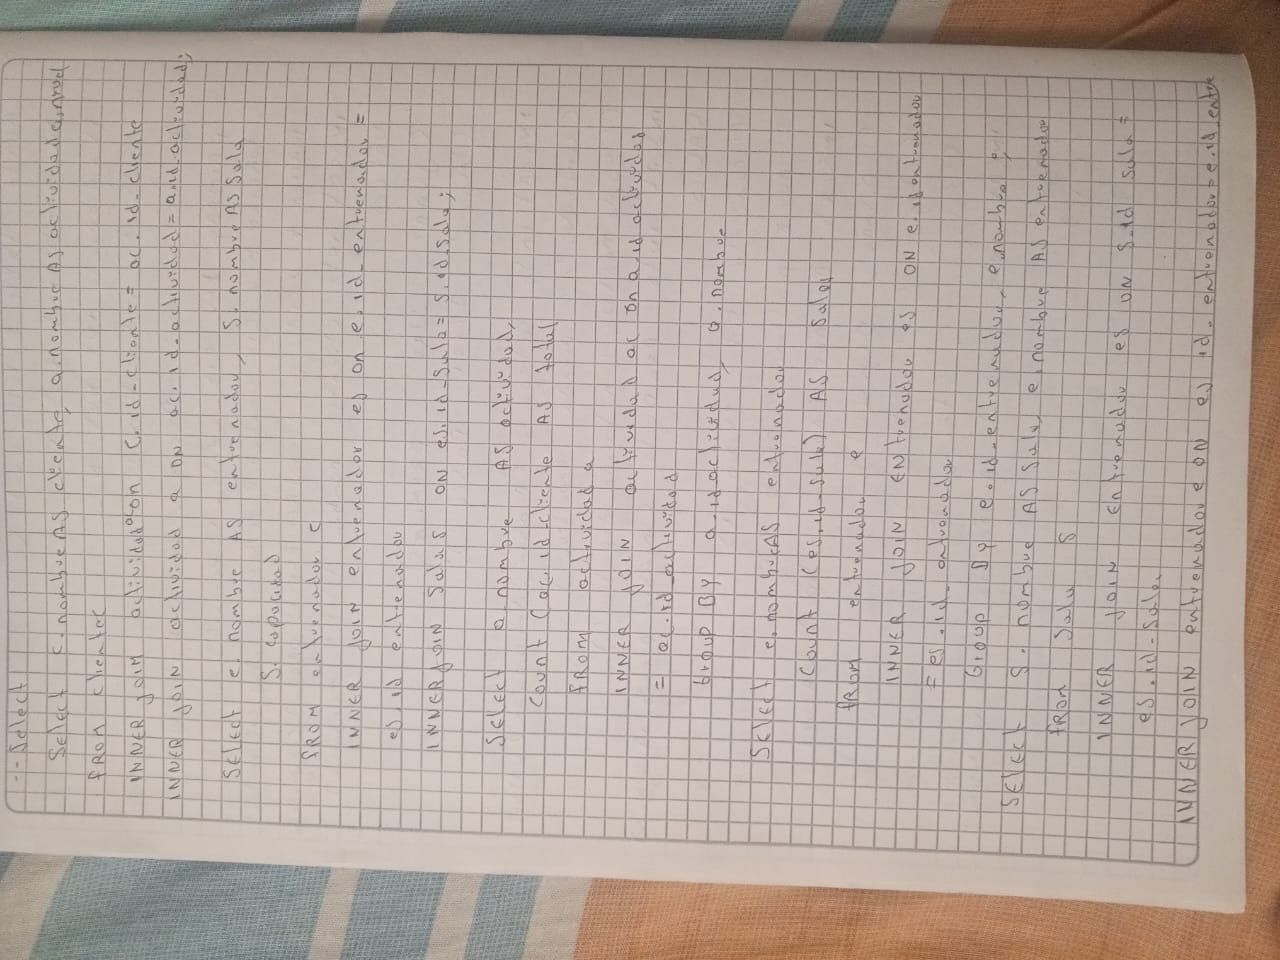 -- Select
Select c.nombre AS cliente, a.nombre AS actividad
FROM cliente c
INNER JOIN actividad on c.id-cliente = ac.id-cliente
INNER JOIN actividad a ON ac.id-actividad = a.id-actividad;
SELECT e.nombre AS entrenador, S.nombre AS Sala
S.capacidad
FROM entrenador e
INNER JOIN entrenador es on e.id-entrenador =
es.id entrenador
INNER JOIN Salas ON es.id-Sala = S.id-Sala;
SELECT a.nombre AS actividad,
Count (ac.id-cliente AS total
FROM actividad a
INNER JOIN actividad ac on a.id actividad
= ac.id_actividad
Group BY a.id actividad, a.nombre
SELECT e.nombre AS entrenador
Count (es.id-Sala) AS Salas
FROM entrenador e
INNER JOIN ENtrenador es ON e.id entrenador
= es.id-entrenador
Group By e.id-entrenador, e.nombre;
SELECT S.nombre AS Sala, e.nombre AS entrenador
FROM Sala S
INNER JOIN Entrenador es ON S.id Sala =
es.id-Sala
INNER JOIN entrenador e ON es id-entrenador = e.id entre